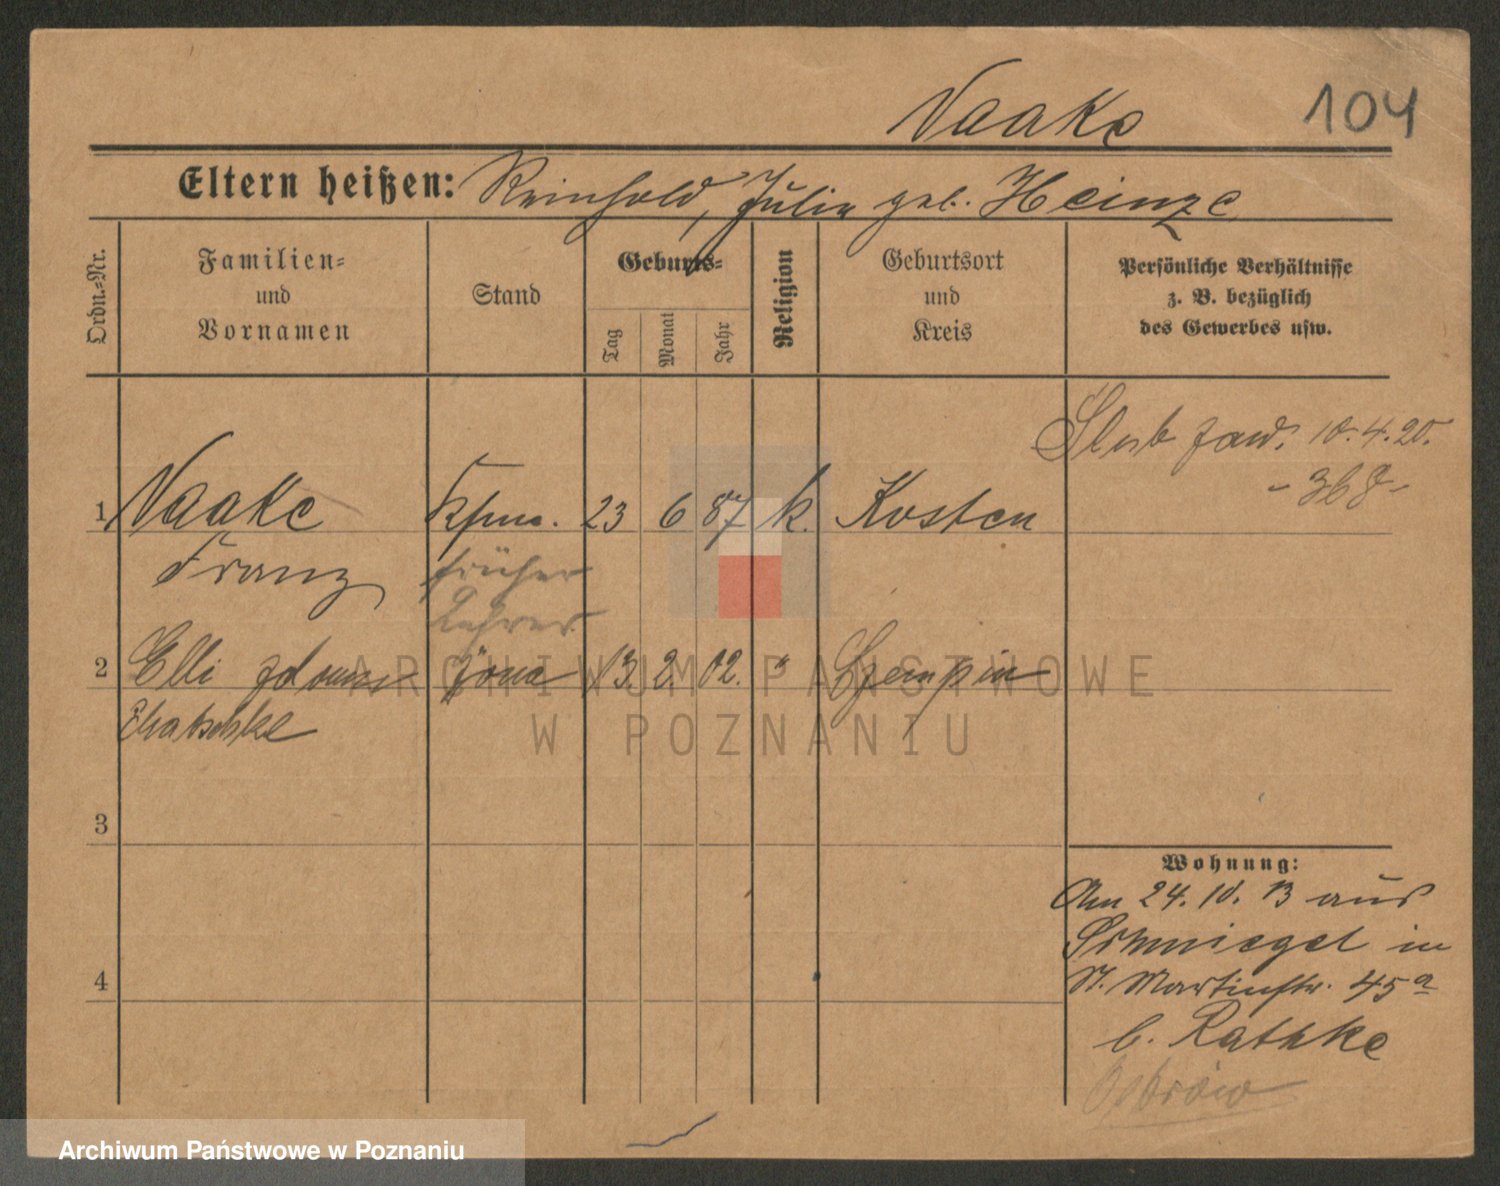 Vaake 104
Eltern heißen: Reinhold, Julie geb. Heinze
Ordn.-Nr.
Familien-
und
Vornamen
Stand
Geburts-
Tag
Monat
Jahr
Religion
Geburtsort
und
Kreis
Persönliche Verhältnisse
z. B. bezüglich
des Gewerbes usw.
Slub zaw. 10.4.20.
- 368 -
1 Vaake Kfm. 23 6 87 k. Kosten
Franz früher
Lehrer
2 Elli żona 13. 2. 02. " Czempin
3
4
Wohnung:
Am 24. 10. 13 aus
Schmiegel in
St. Martinstr. 45a
b. Rathke
Ostrów
ARCHIWUM PAŃSTWOWE
W POZNANIU
Archiwum Państwowe w Poznaniu